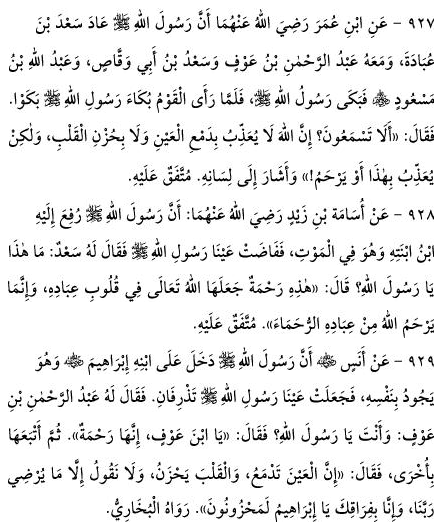 ٩٢٧ - عَنِ ابْنِ عُمَرَ رَضِيَ اللهُ عَنْهُمَا أَنَّ رَسُولَ اللهِ ﷺ عَادَ سَعْدَ بْنَ
عُبَادَةَ، وَمَعَهُ عَبْدُ الرَّحْمٰنِ بْنُ عَوْفٍ وَسَعْدُ بْنُ أَبِي وَقَّاصٍ، وَعَبْدُ اللهِ بْنُ
مَسْعُودٍ ﷺ فَبَكَى رَسُولُ اللهِ ﷺ، فَلَمَّا رَأَى الْقَوْمُ بُكَاءَ رَسُولِ اللهِ ﷺ بَكَوْا.
فَقَالَ: «أَلَا تَسْمَعُونَ؟ إِنَّ اللهَ لَا يُعَذِّبُ بِدَمْعِ الْعَيْنِ وَلَا بِحُزْنِ الْقَلْبِ، وَلٰكِنْ
يُعَذِّبُ بِهٰذَا أَوْ يَرْحَمُ!» وَأَشَارَ إِلَى لِسَانِهِ. مُتَّفَقٌ عَلَيْهِ.
٩٢٨ - عَنْ أُسَامَةَ بْنِ زَيْدٍ رَضِيَ اللهُ عَنْهُمَا: أَنَّ رَسُولَ اللهِ ﷺ رُفِعَ إِلَيْهِ
ابْنُ ابْنَتِهِ وَهُوَ فِي الْمَوْتِ، فَفَاضَتْ عَيْنَا رَسُولِ اللهِ ﷺ فَقَالَ لَهُ سَعْدٌ: مَا هٰذَا
يَا رَسُولَ اللهِ؟ قَالَ: «هٰذِهِ رَحْمَةٌ جَعَلَهَا اللهُ تَعَالَى فِي قُلُوبِ عِبَادِهِ، وَإِنَّمَا
يَرْحَمُ اللهُ مِنْ عِبَادِهِ الرُّحَمَاءَ». مُتَّفَقٌ عَلَيْهِ.
٩٢٩ - عَنْ أَنَسٍ ﷺ أَنَّ رَسُولَ اللهِ ﷺ دَخَلَ عَلَى ابْنِهِ إِبْرَاهِيمَ ﷺ وَهُوَ
يَجُودُ بِنَفْسِهِ، فَجَعَلَتْ عَيْنَا رَسُولِ اللهِ ﷺ تَذْرِفَانِ. فَقَالَ لَهُ عَبْدُ الرَّحْمٰنِ بْنِ
عَوْفٍ: وَأَنْتَ يَا رَسُولَ اللهِ؟ فَقَالَ: «يَا ابْنَ عَوْفٍ، إِنَّهَا رَحْمَةٌ». ثُمَّ أَتْبَعَهَا
بِأُخْرَى، فَقَالَ: «إِنَّ الْعَيْنَ تَدْمَعُ، وَالْقَلْبَ يَحْزَنُ، وَلَا نَقُولُ إِلَّا مَا يُرْضِي
رَبَّنَا، وَإِنَّا بِفِرَاقِكَ يَا إِبْرَاهِيمُ لَمَحْزُونُونَ». رَوَاهُ الْبُخَارِيُّ.